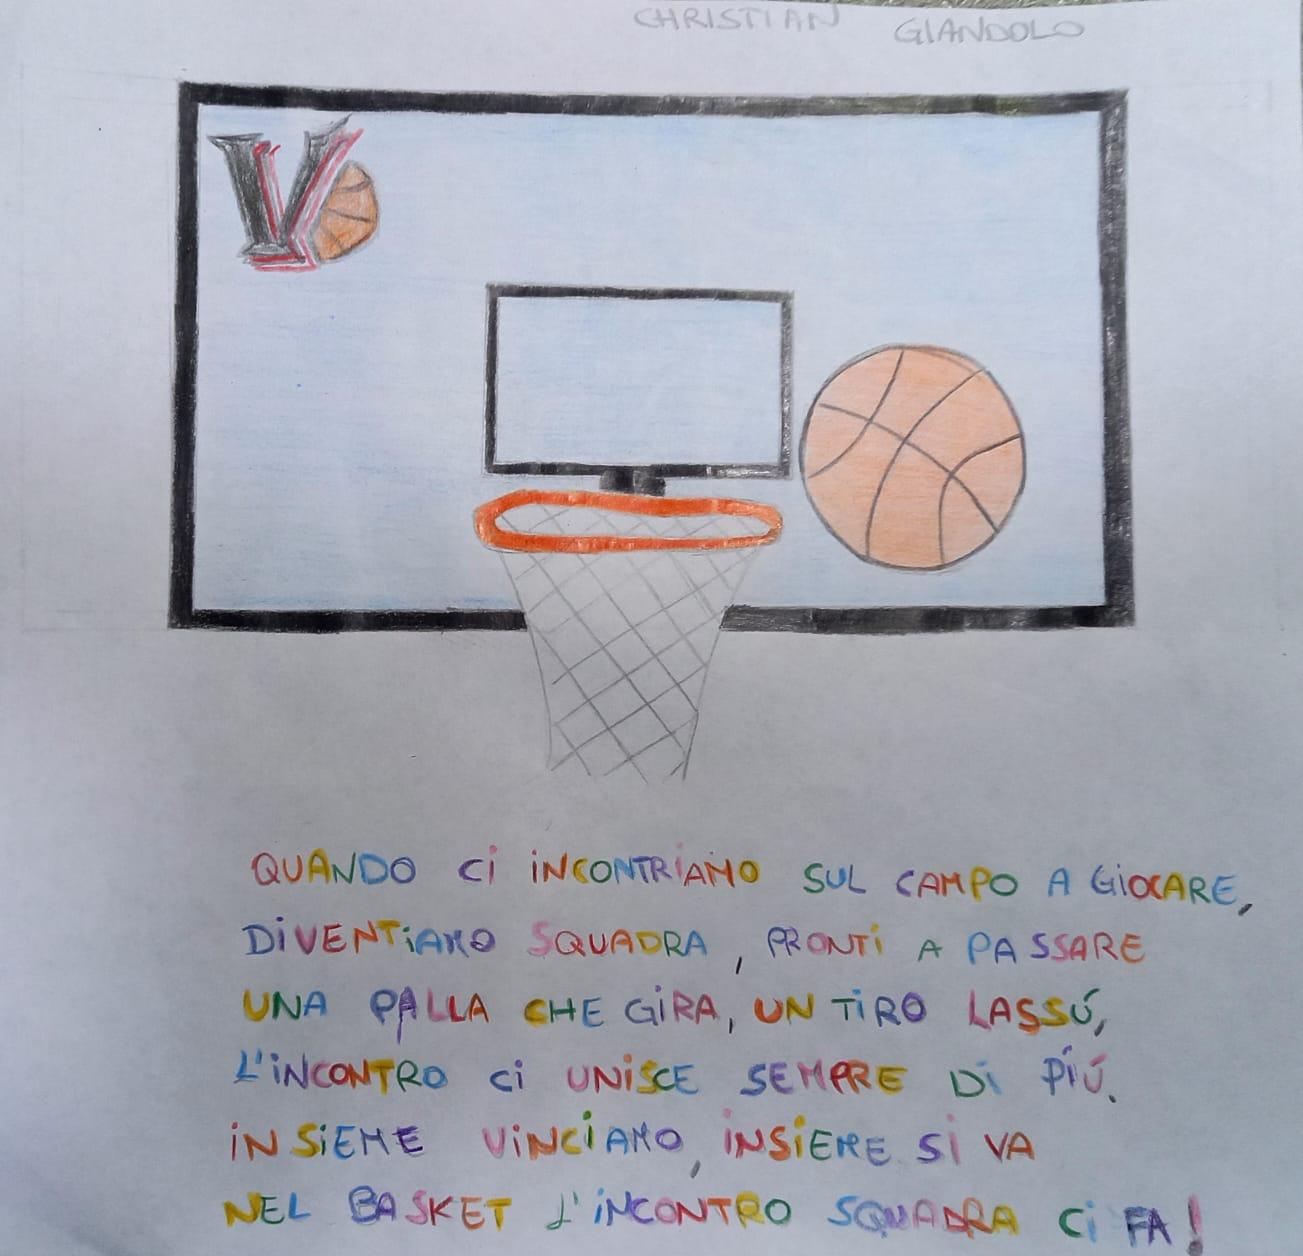 CHRISTIAN GIANDOLO
V
QUANDO Ci iNCONTRiAMO SUL CAMPO A GiOCARE,
DiVENTiAMO SQUADRA, PRONTi A PASSARE
UNA PALLA CHE GiRA, UN TiRO LASSÚ,
L'iNCONTRO Ci UNiSCE SEMPRE Di PiÚ.
iNSiEME ViNCiAMO, iNSiEME Si VA
NEL BASKET L'iNCONTRO SQUADRA Ci FA!